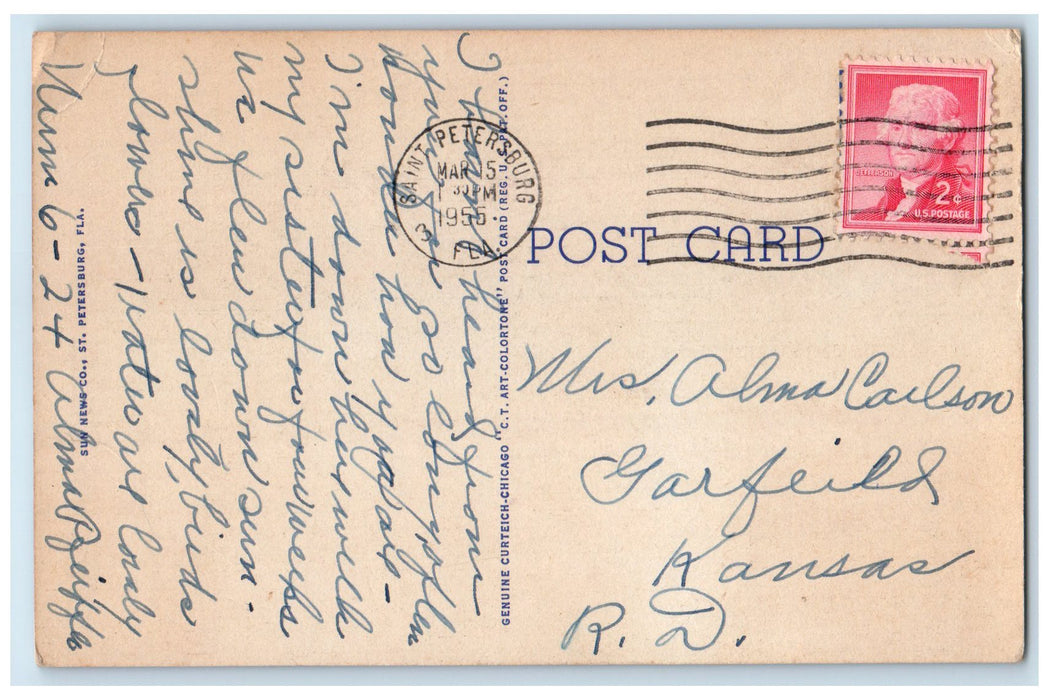 I haven't heard from
you for so long, often
wonder how you all -
I'm down here with
my sister for four weeks
we flew down sun
shine is lovely birds
flowers - Water are lovely
6-24 Alma
SUN NEWS CO., ST. PETERSBURG, FLA.
GENUINE CURTEICH-CHICAGO "C.T. ART-COLORTONE" POST CARD (REG. U.S. PAT. OFF.)
SAINT PETERSBURG
MAR 15
PM
1955
3
FLA.
JEFFERSON
2¢
U.S. POSTAGE
POST CARD
Mrs. Alma Carlson
Garfeild
Kansas
R.D.